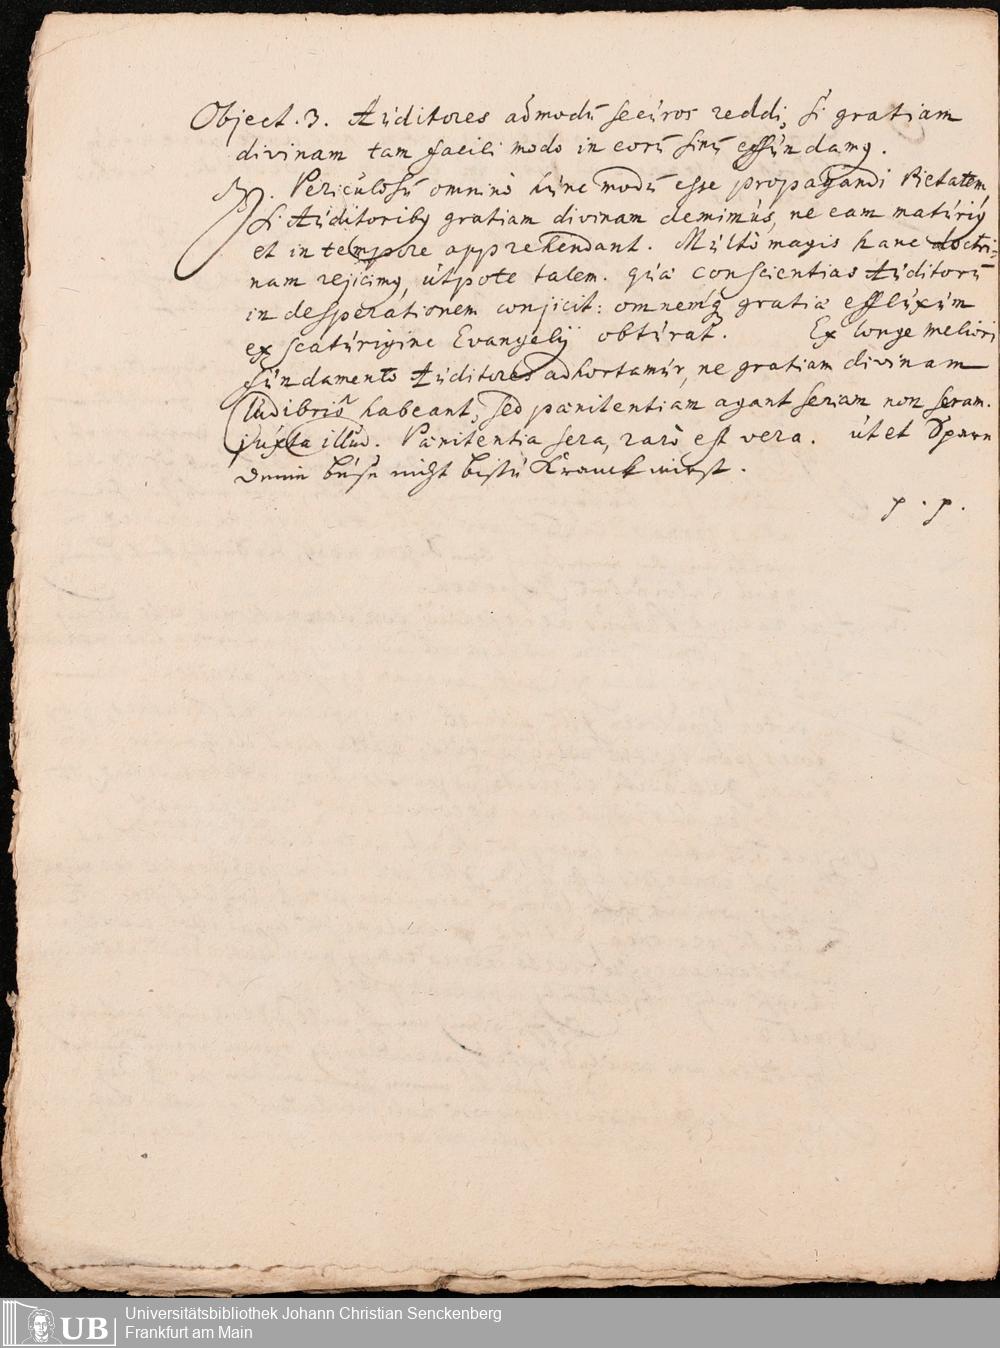 Object. 3. Aúditores admodū secúros reddi, si gratiam
divinam tam facili modo in eorū sinū effúndamꝰ.
R. Periculosū omninò húnc modū esse propagandi Pietatem,
si Aúditoribꝰ gratiam divinam demimús, ne eam matúriꝰ
et in tempore apprehendant. Múltò magis hanc doctri-
nam rejicimꝰ, útpote talem. qúa conscientias Aúditorū
in desperationem conjicit: omnemq́ gratiæ efflúxúm
ex scatúrigine Evangelij obtúrat. Ex longe meliori
fúndamento Aúditores adhortamúr, ne gratiam divinam
lúdibriò habeant, sed pænitentiam agant seriam non seram.
júxta illúd. Pænitentia sera, rarò est vera. út et Spare
deine búse nicht bistú Kranck wirst.
p. p.
Universitätsbibliothek Johann Christian Senckenberg
Frankfurt am Main
UB